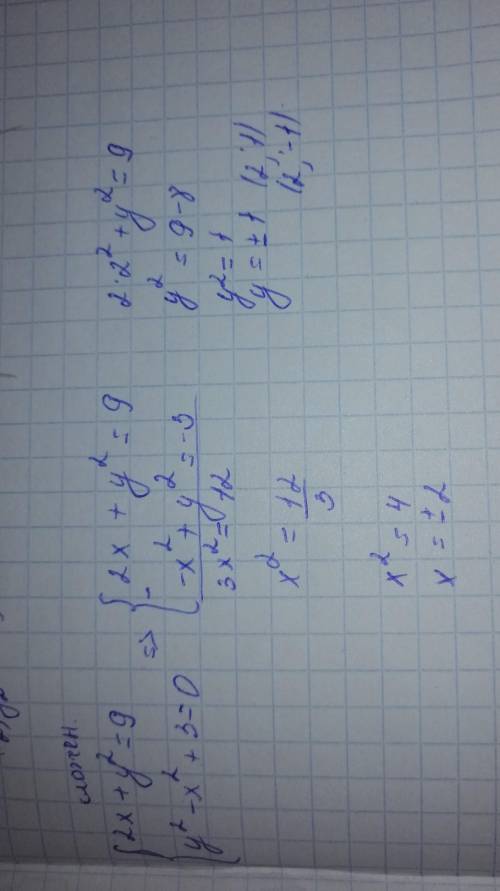 сложен.
{2x + y² = 9
{y² - x² + 3 = 0
=> {2x + y² = 9
- {-x² + y² = -3
3x² = 12
x² = 12/3
x² = 4
x = ±2
2·2² + y² = 9
y² = 9-8
y² = 1
y = ±1 (2; 1)
(2; -1).